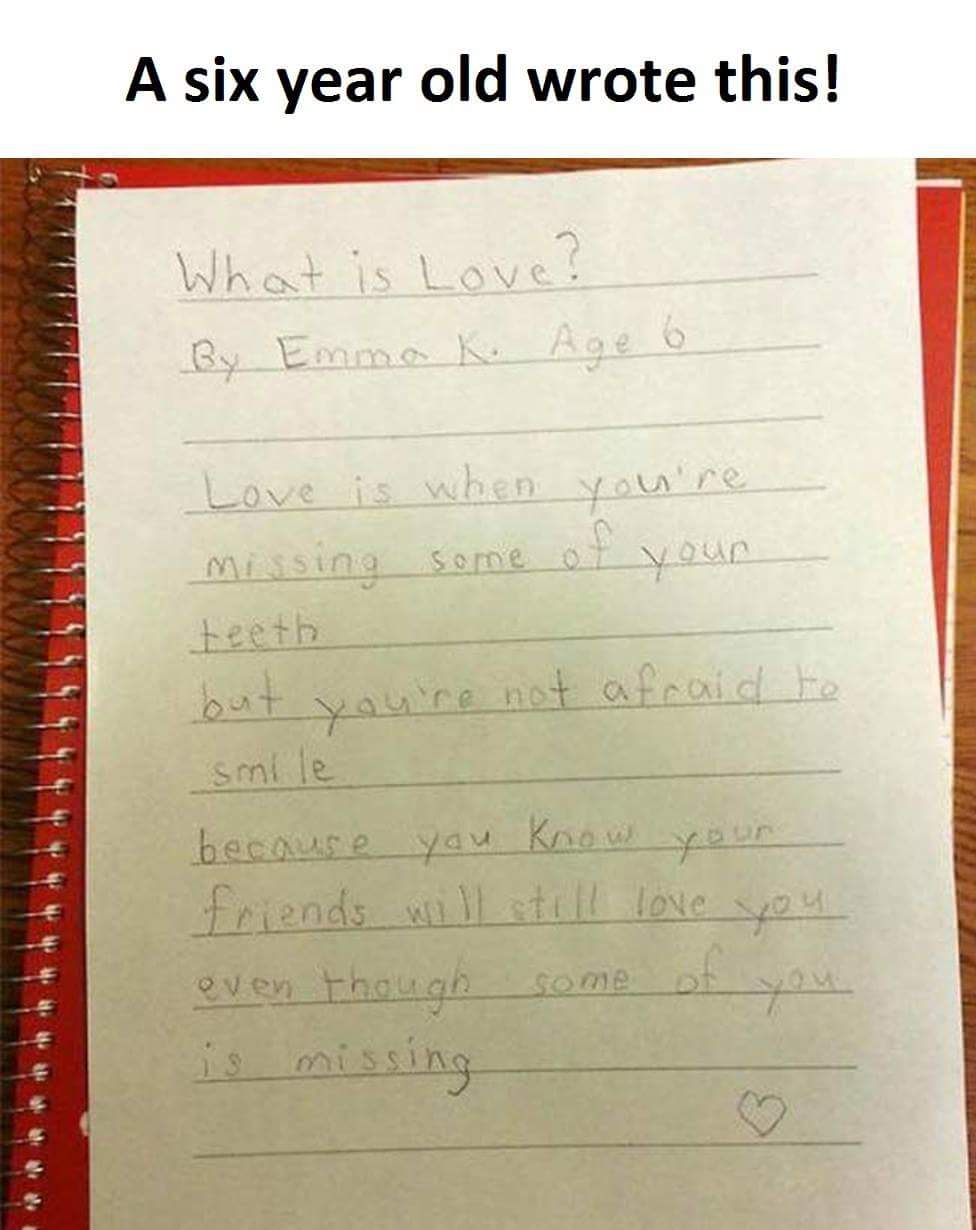 A six year old wrote this!
What is Love?
By Emma K. Age 6
Love is when you're
missing some of your
teeth
but you're not afraid to
smile
because you know your
friends will still love you
even though some of you
is missing